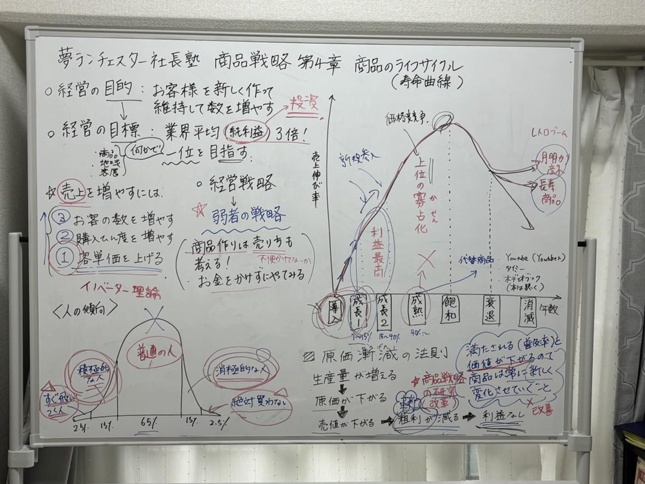 夢ランチェスター社長塾 商品戦略 第4章 商品のライフサイクル
(寿命曲線)
○ 経営の目的：お客様を新しく作って
維持して数を増やす
投資
○ 経営の目標：業界平均 純利益 3倍！
商品
地域
客層
何かで
一位を目指す
☆ 売上を増やすには
③ お客の数を増やす
② 購入を増やす
① 客単価を上げる
○ 経営戦略
☆ 弱者の戦略
商品作りは売り方も
考える！
お金をかけずにやってみる
イノベーター理論
<人の傾向>
普通の人
積極的な人
すぐ
消極的な人
絶対買わない
2.5% 13% 65% 13% 2.5%
売上伸び率
新規参入
価格競争
上位の寡占化
かせん
利益最高
レトロブーム
長寿商品
代替商品
Youtube
導入 成長1 成長2 成熟 飽和 衰退 消滅 年数
※ 原価漸減の法則
生産量が増える
原価が下がる
売価が下がる → 粗利が減る → 利益なし
☆ 商品戦略
の研究
改革
満たされる(普及率)と
価値が下がるので
商品は常に新しく
変化させていくこと
× 改善